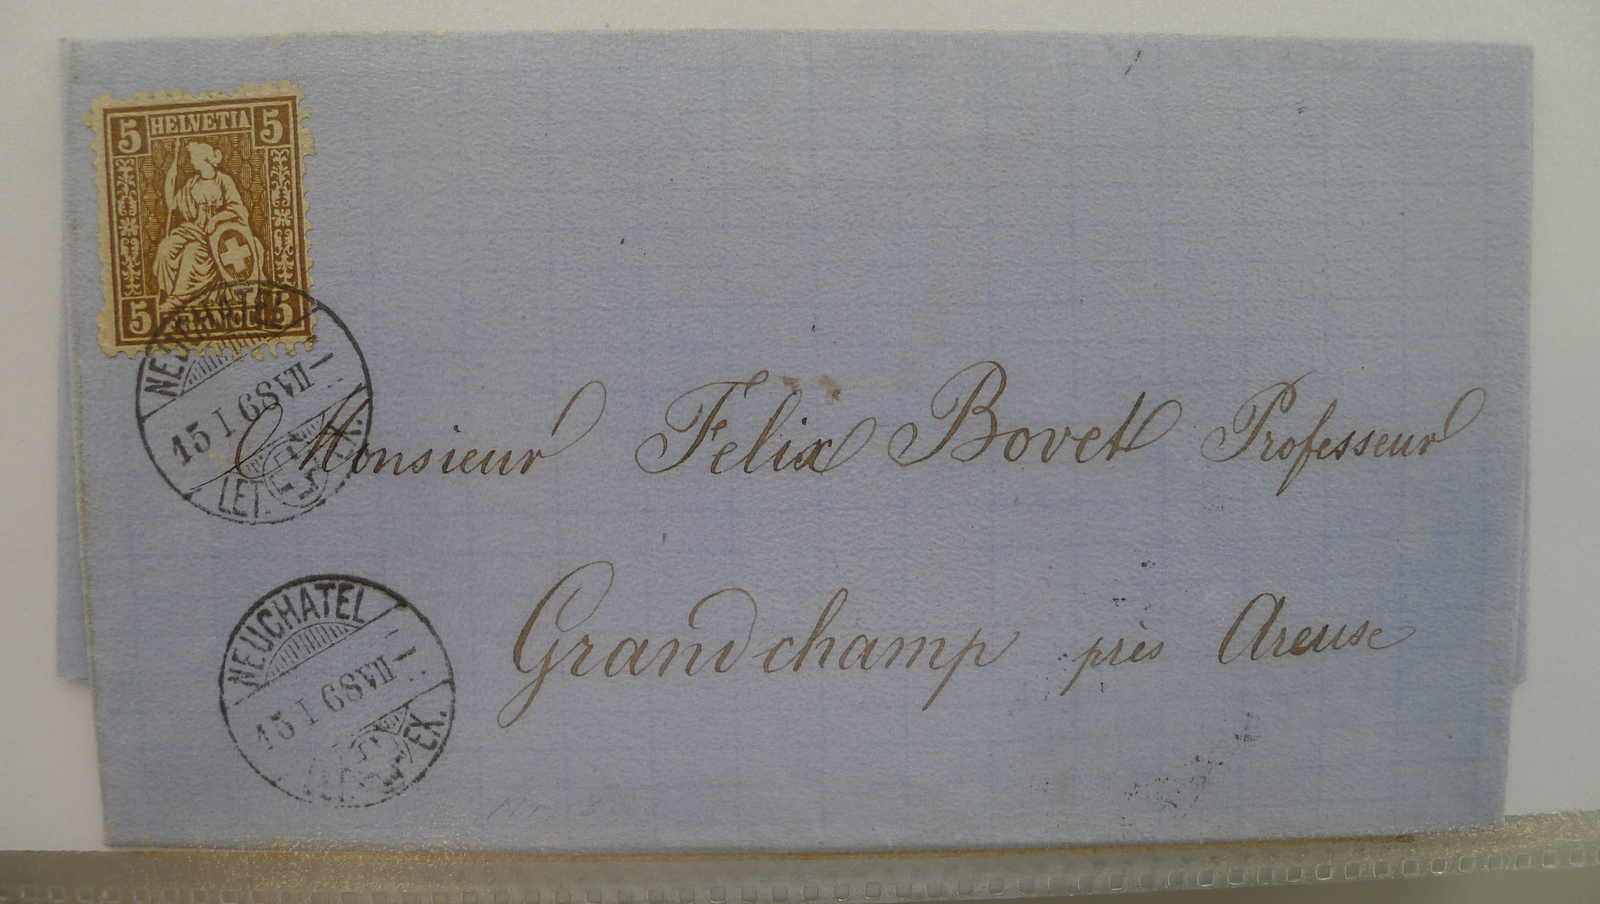 5 HELVETIA 5
5 5
NEUCHATEL
15 I 68 VII
LET. EX.
Monsieur Félix Bovet Professeur
Grandchamp près Areuse
NEUCHATEL
15 I 68 VII
EX.